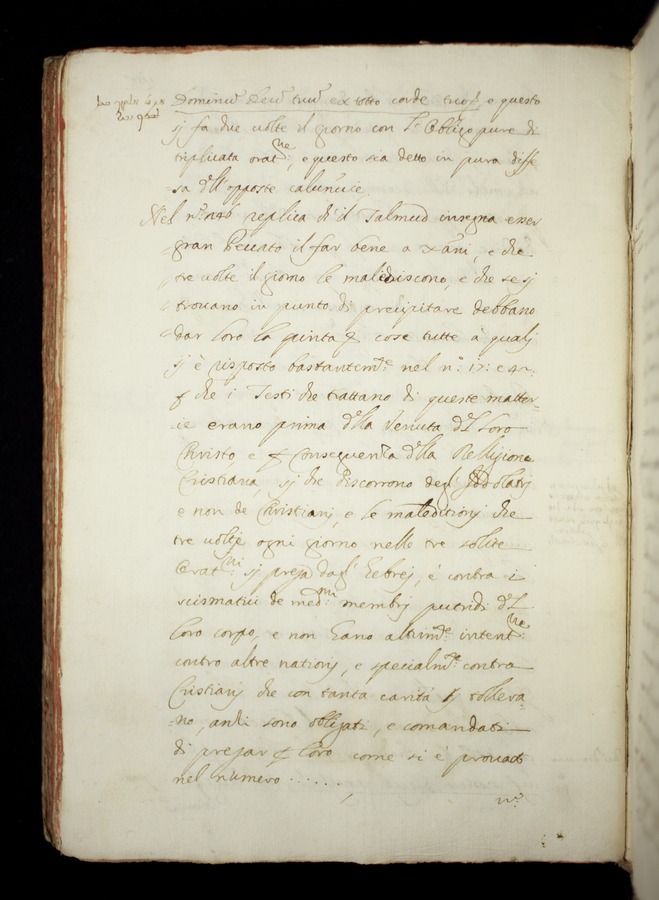 Dominũ Deũ tuũ ex toto corde tuo, e questo
si fa due volte il giorno con l'obligo pure di
triplicata orat:ne, e questo sia detto in pura diffe
=sa dell'opposte calunnie.
Nel n.o 146 replica che il Talmud insegna esser
gran peccato il far bene a Xani, e che
tre volte il giorno le malediscono, e che se si
trovano in punto di precipitare debbano
dar loro la pinta cose tutte à quali
si è risposto bastantem.te nel n.o 17: e 42:
che i Testi che trattano di queste matter-
ie erano prima della Venuta del Loro
Christo, e conseguenza della Religione
Cristiana, si che discorrono degl'Iddolatrij
e non de Christianj, e le maleditionj che
tre volte ogni giorno nelle tre solite
Orat:ni si prega dagl'Eebrej, è contra i
scismatici de med:mi membrj putridi del
loro corpo, e non hano altrim.te intent:ne
contro altre nationj, e specialm.te contra
Cristianj che con tanta carità lj tollera-
=no, anzi sono obligati, e comandati
di pregar loro come si è provato
nel numero ......